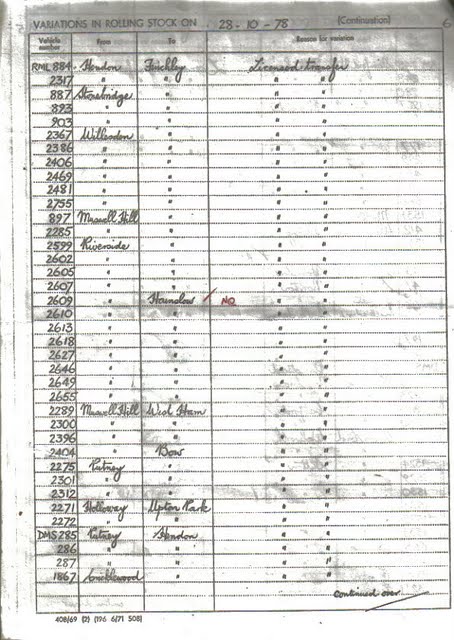 VARIATIONS IN ROLLING STOCK ON 28-10-78 (Continuation) 6
Vehicle number From To Reason for variation
RML 884 Hendon Finchley Licensed transfer
2317 " " " "
887 Stonebridge " " "
893 " " " "
903 " " "
2367 Willesden " " "
2386 " " " "
2406 " " " "
2469 " " " "
2481 " " " "
2755 " " " "
897 Muswell Hill " " "
2285 " " " "
2599 Riverside " " "
2602 " " " "
2605 " " " "
2607 " " " "
2609 " Hounslow / NO " "
2610 " " " "
2613 " " " "
2618 " " " "
2627 " " " "
2646 " " " "
2649 " " " "
2655 " " " "
2289 Muswell Hill West Ham " "
2300 " " " "
2396 " " " "
2404 " Bow " "
2275 Putney " " "
2301 " " " "
2312 " " " "
2271 Holloway Upton Park " "
2272 " " " "
DMS 285 Putney Hendon " "
286 " " " "
287 " " " "
1867 Cricklewood " " "
continued over
408/69 (2) (196 6/71 508)